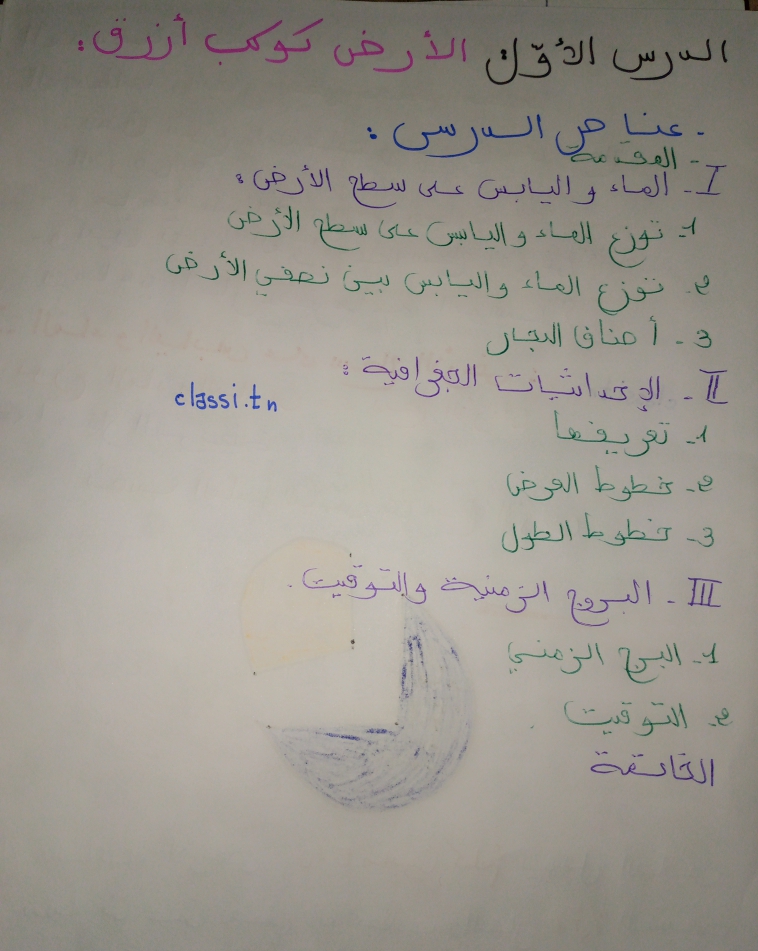 الدرس الأوّل الأرض كوكب أزرق:
- عناصر الدرس:
- المقدمة
I- الماء واليابس على سطح الأرض:
1- توزع الماء واليابس على سطح الأرض
2- توزع الماء واليابس بين نصفي الأرض
3- أصناف البحار
II- الإحداثيات الجغرافية:
classi.tn
1- تعريفها
2- خطوط العرض
3- خطوط الطول
III- البروج الزمنية والتوقيت.
1- البرج الزمني
2- التوقيت
الخاتمة